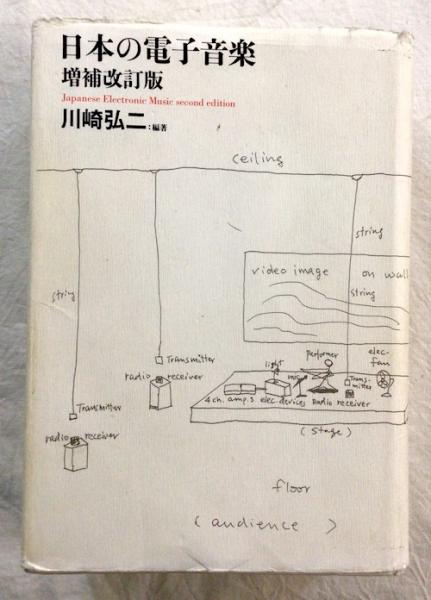 日本の電子音楽
増補改訂版
Japanese Electronic Music second edition
川崎弘二:編著
ceiling
string
string
video image on wall
string
performer
elec-
fan
light
mic
Transmitter
radio receiver
Trans-
mitter
4 ch. amp.s elec. devices Radio receiver
Transmitter
(stage)
radio receiver
floor
(audience)